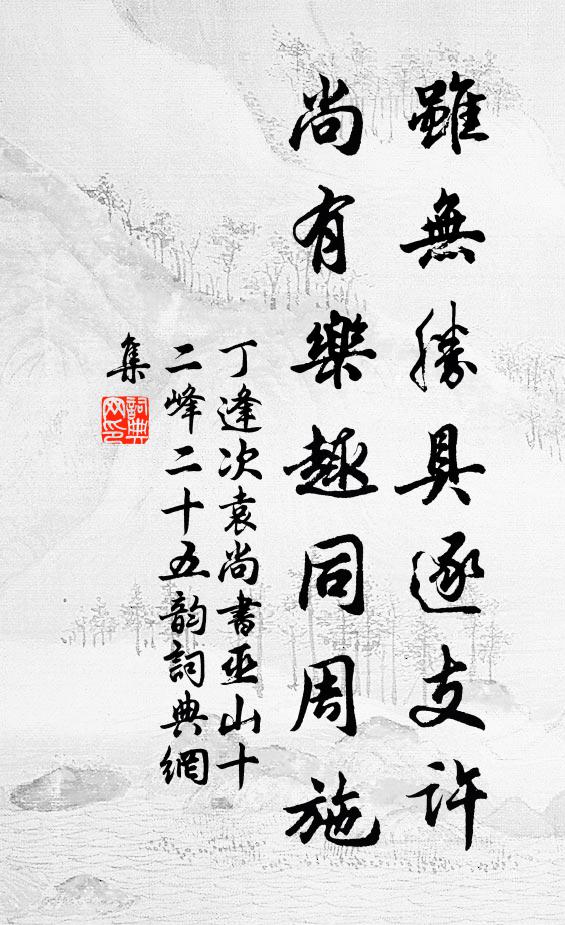 雖無勝具逐支許
尚有樂趣同周施
丁逢次袁尚書巫山十
二峰二十五韵詞典網
集
詞典
网印